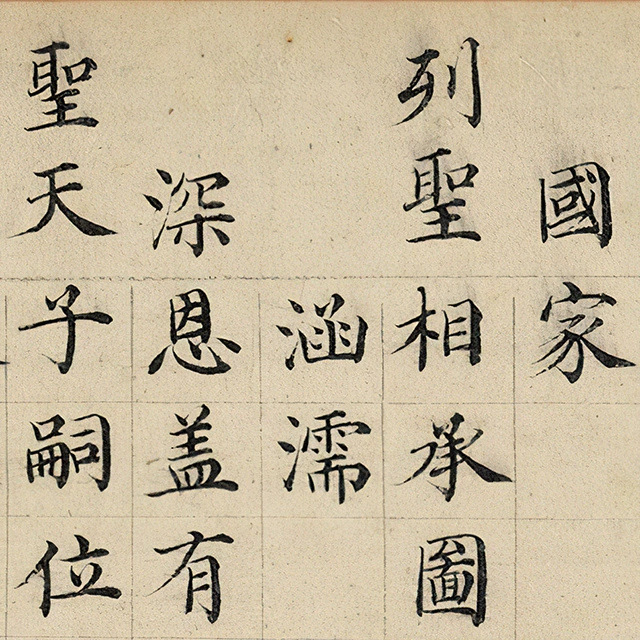 國家
列聖相承圖
涵濡
深恩盖有
聖天子嗣位